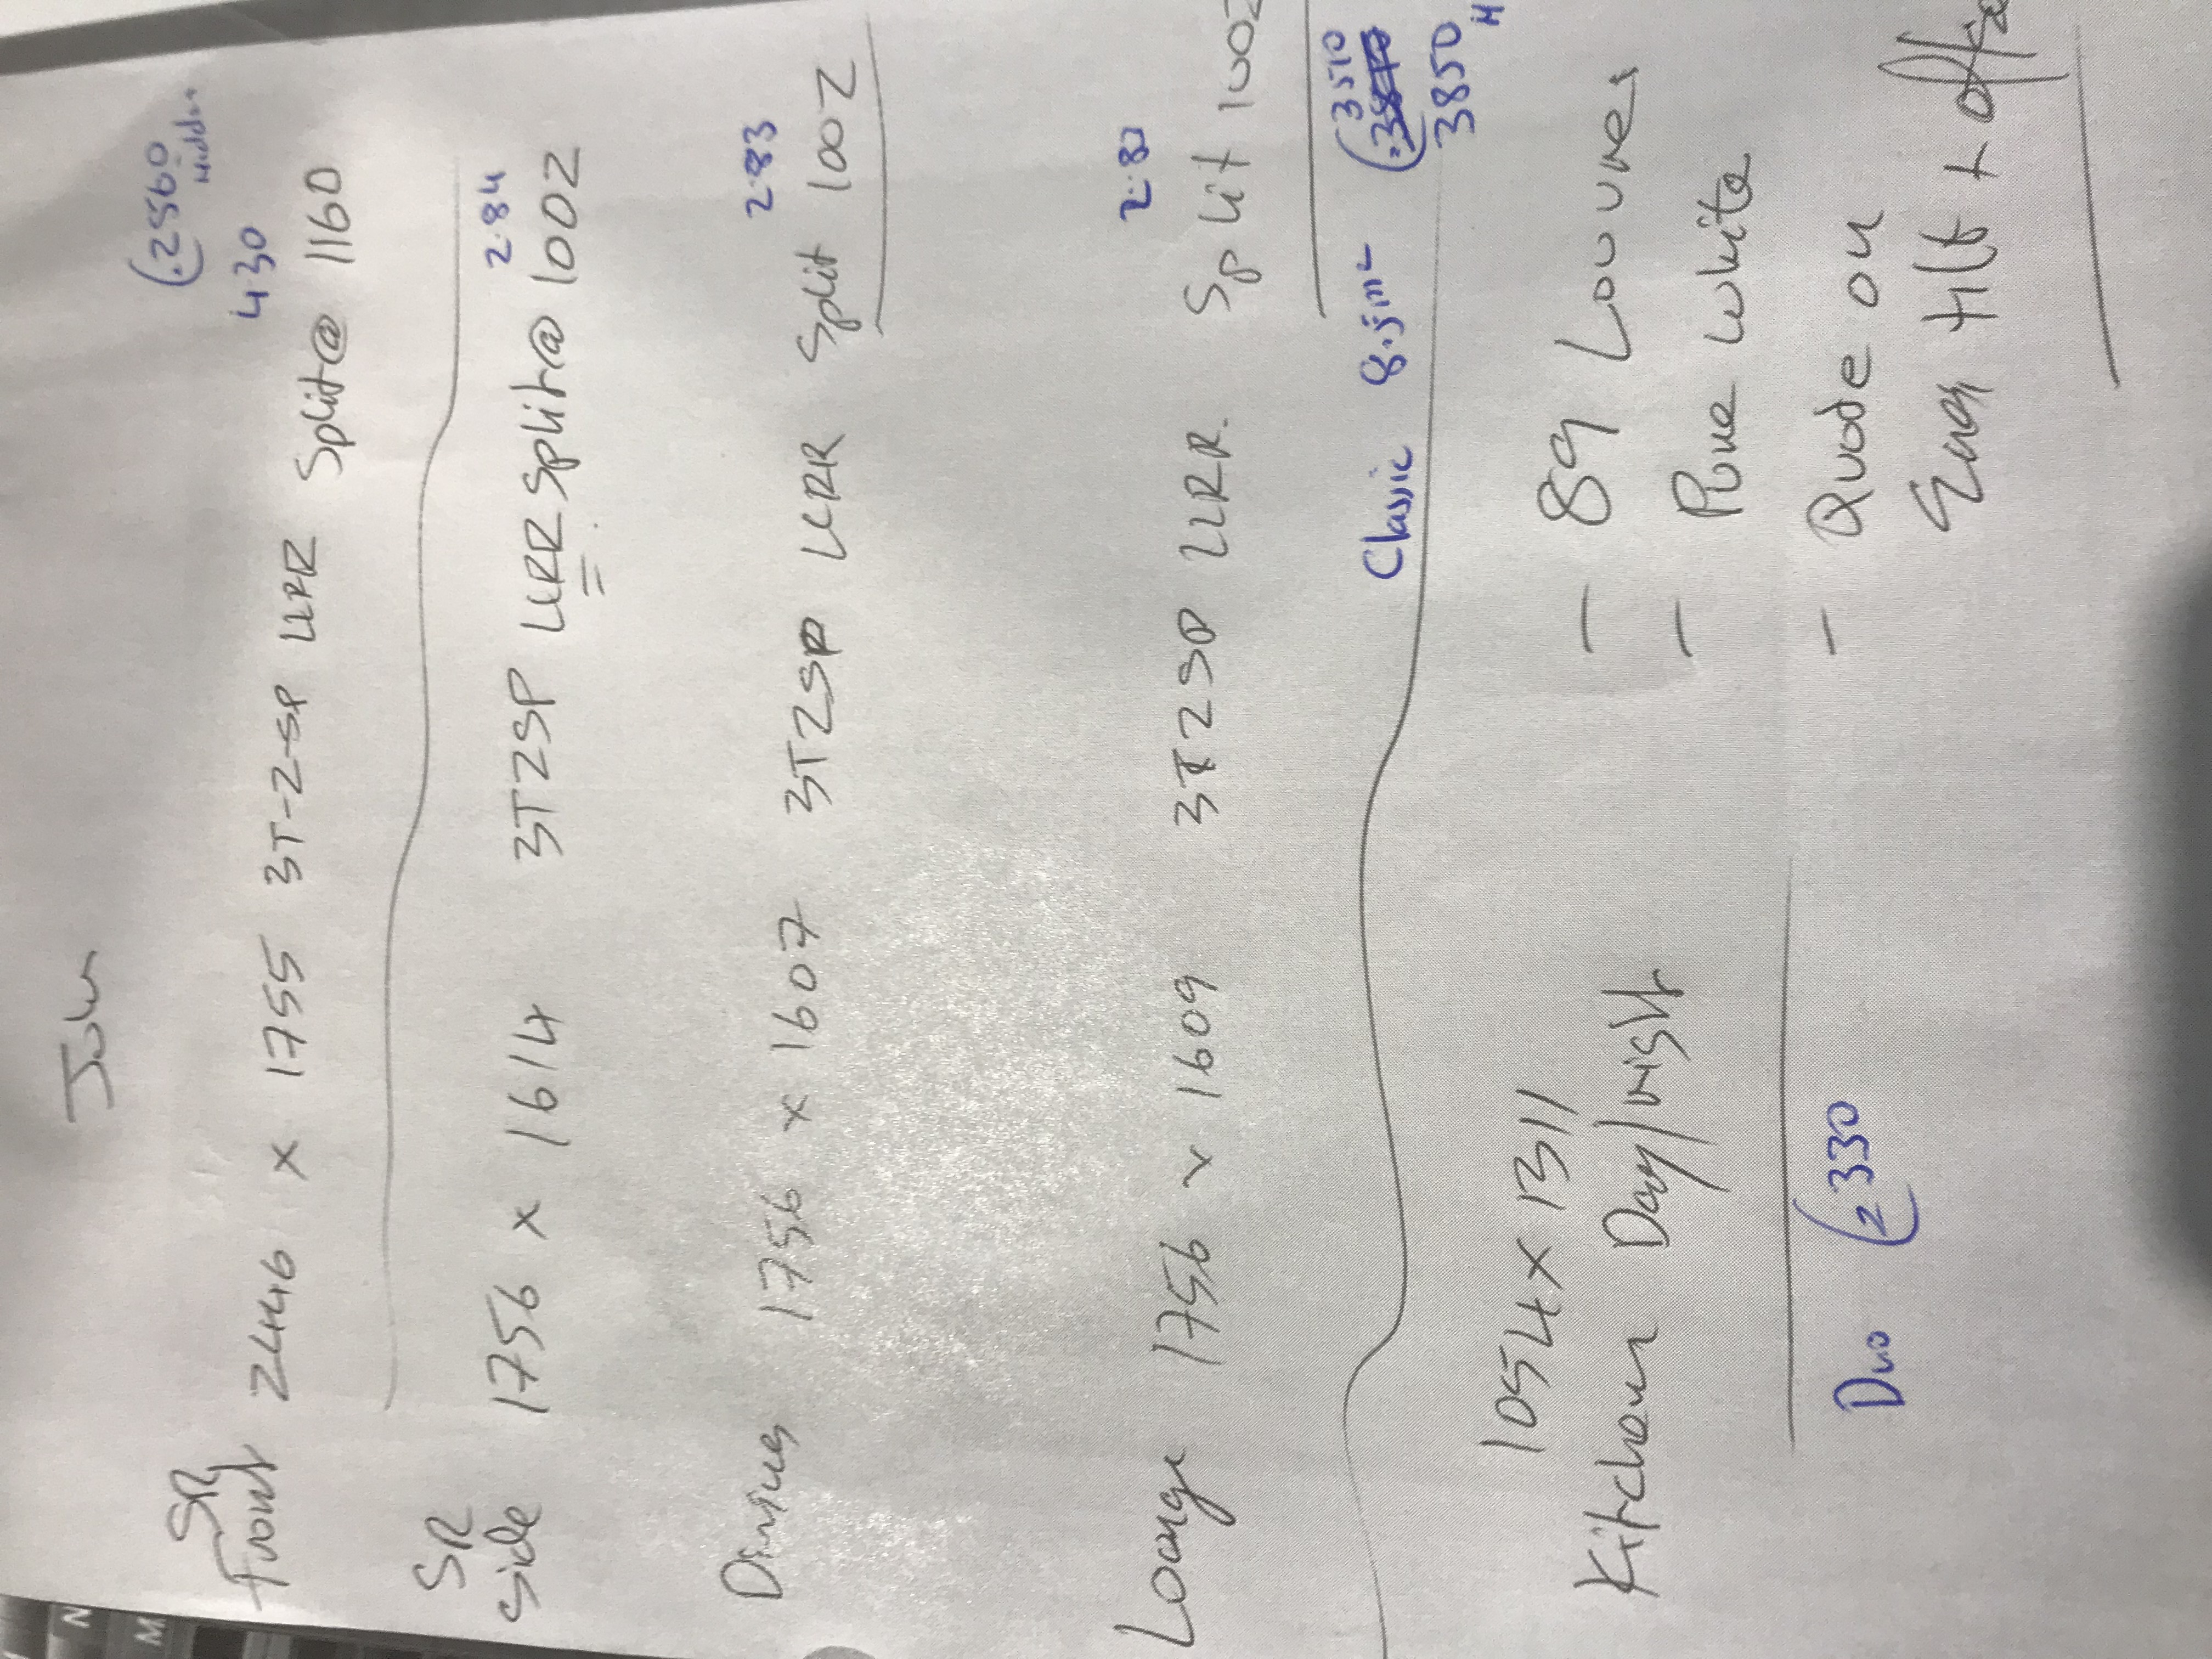 John
(.2560
Hidden
SR 430
Front 2446 x 1755 3T-2-SP LLRR Split@ 1160
SR 2.84
Side 1756 x 1614 3T2SP LLRR Split@ 1002
2.83
Dining 1756 x 1607 3T2SP LLRR Split 1002
2.83
Lounge 1756 x 1609 3T2SP LLRR. Split 1002
Classic 8.5m² (.3510
3850
H
1054 x 1311 - 89 Louvres
Kitchen Day/Night - Pure White
Duo (2330 - Quote on
Easy tilt + offse
N
M